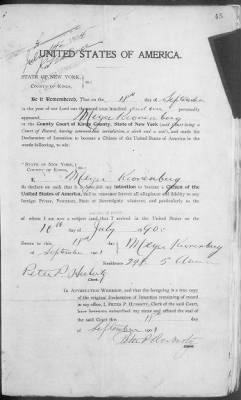 45
UNITED STATES OF AMERICA.
STATE OF NEW YORK,
COUNTY OF KINGS,
Be it Remembered, That on the 18th day of September
in the year of our Lord one thousand nine hundred and one personally
appeared Meyer Kronenberg
in the County Court of Kings County, State of New York (said Court being a
Court of Record, having common law jurisdiction, a clerk and a seal), and made the
Declaration of Intention to become a Citizen of the United States of America in the
words following, to wit:
"STATE OF NEW YORK,
COUNTY OF KINGS,
I, Meyer Kronenberg
do declare on oath, that it is bona fide my intention to become a Citizen of the
United States of America, and to renounce forever all allegiance and fidelity to any
foreign Prince, Potentate, State or Sovereignty whatever, and particularly to the
of whom I am now a subject and that I arrived in the United States on the
10th July 190
Sworn to this 18th day Meyer Kronenberg
of September 1901
Residence 5 Avenue
Peter P. Huberty
Clerk.
IN ATTESTATION WHEREOF, and that the foregoing is a true copy
of the original Declaration of Intention remaining of record
in my office, I, PETER P. HUBERTY, Clerk of the said Court,
have hereunto subscribed my name and affixed the seal of
the said Court this 18 day
of September 1901
Peter P. Huberty
Clerk.